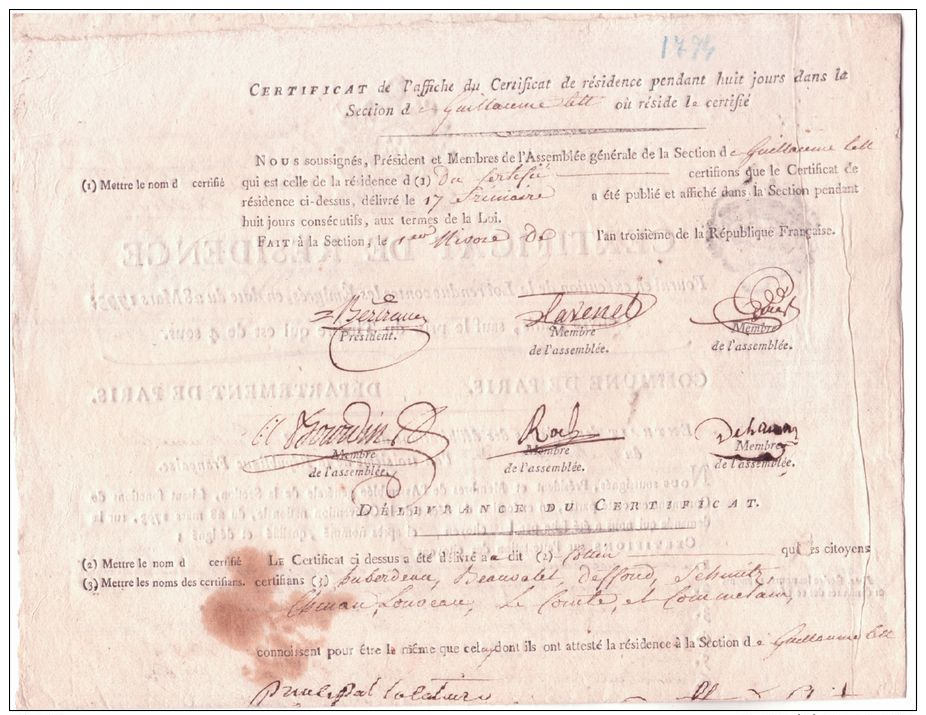 1794
CERTIFICAT de l'affiche du Certificat de résidence pendant huit jours dans la
Section de Guillaume tell où réside le certifié
NOUS soussignés, Président et Membres de l'Assemblée générale de la Section de Guillaume tell
(1) Mettre le nom d certifié qui est celle de la résidence d (1) Du Certifié certifions que le Certificat de
résidence ci-dessus, délivré le 17 frimaire a été publié et affiché dans la Section pendant
huit jours consécutifs, aux termes de la Loi.
FAIT à la Section, le 1er Nivose de l'an troisième de la République Française.
Tavenel
Président. Membre Membre
de l'assemblée. de l'assemblée.
Bourdin Roch
Membre Membre Membre
de l'assemblée. de l'assemblée. de l'assemblée.
DÉLIVRANCE DU CERTIFICAT.
(2) Mettre le nom d certifié LE Certificat ci dessus a été délivré au dit (2) que les citoyens
(3) Mettre les noms des certifians. certifians (3) Duberdeau, Beauvalet, deffond, Schmits
Louveau, Le Comte, et Commetant,
connoissent pour être la même que celuy dont ils ont attesté la résidence à la Section de Guillaume tell